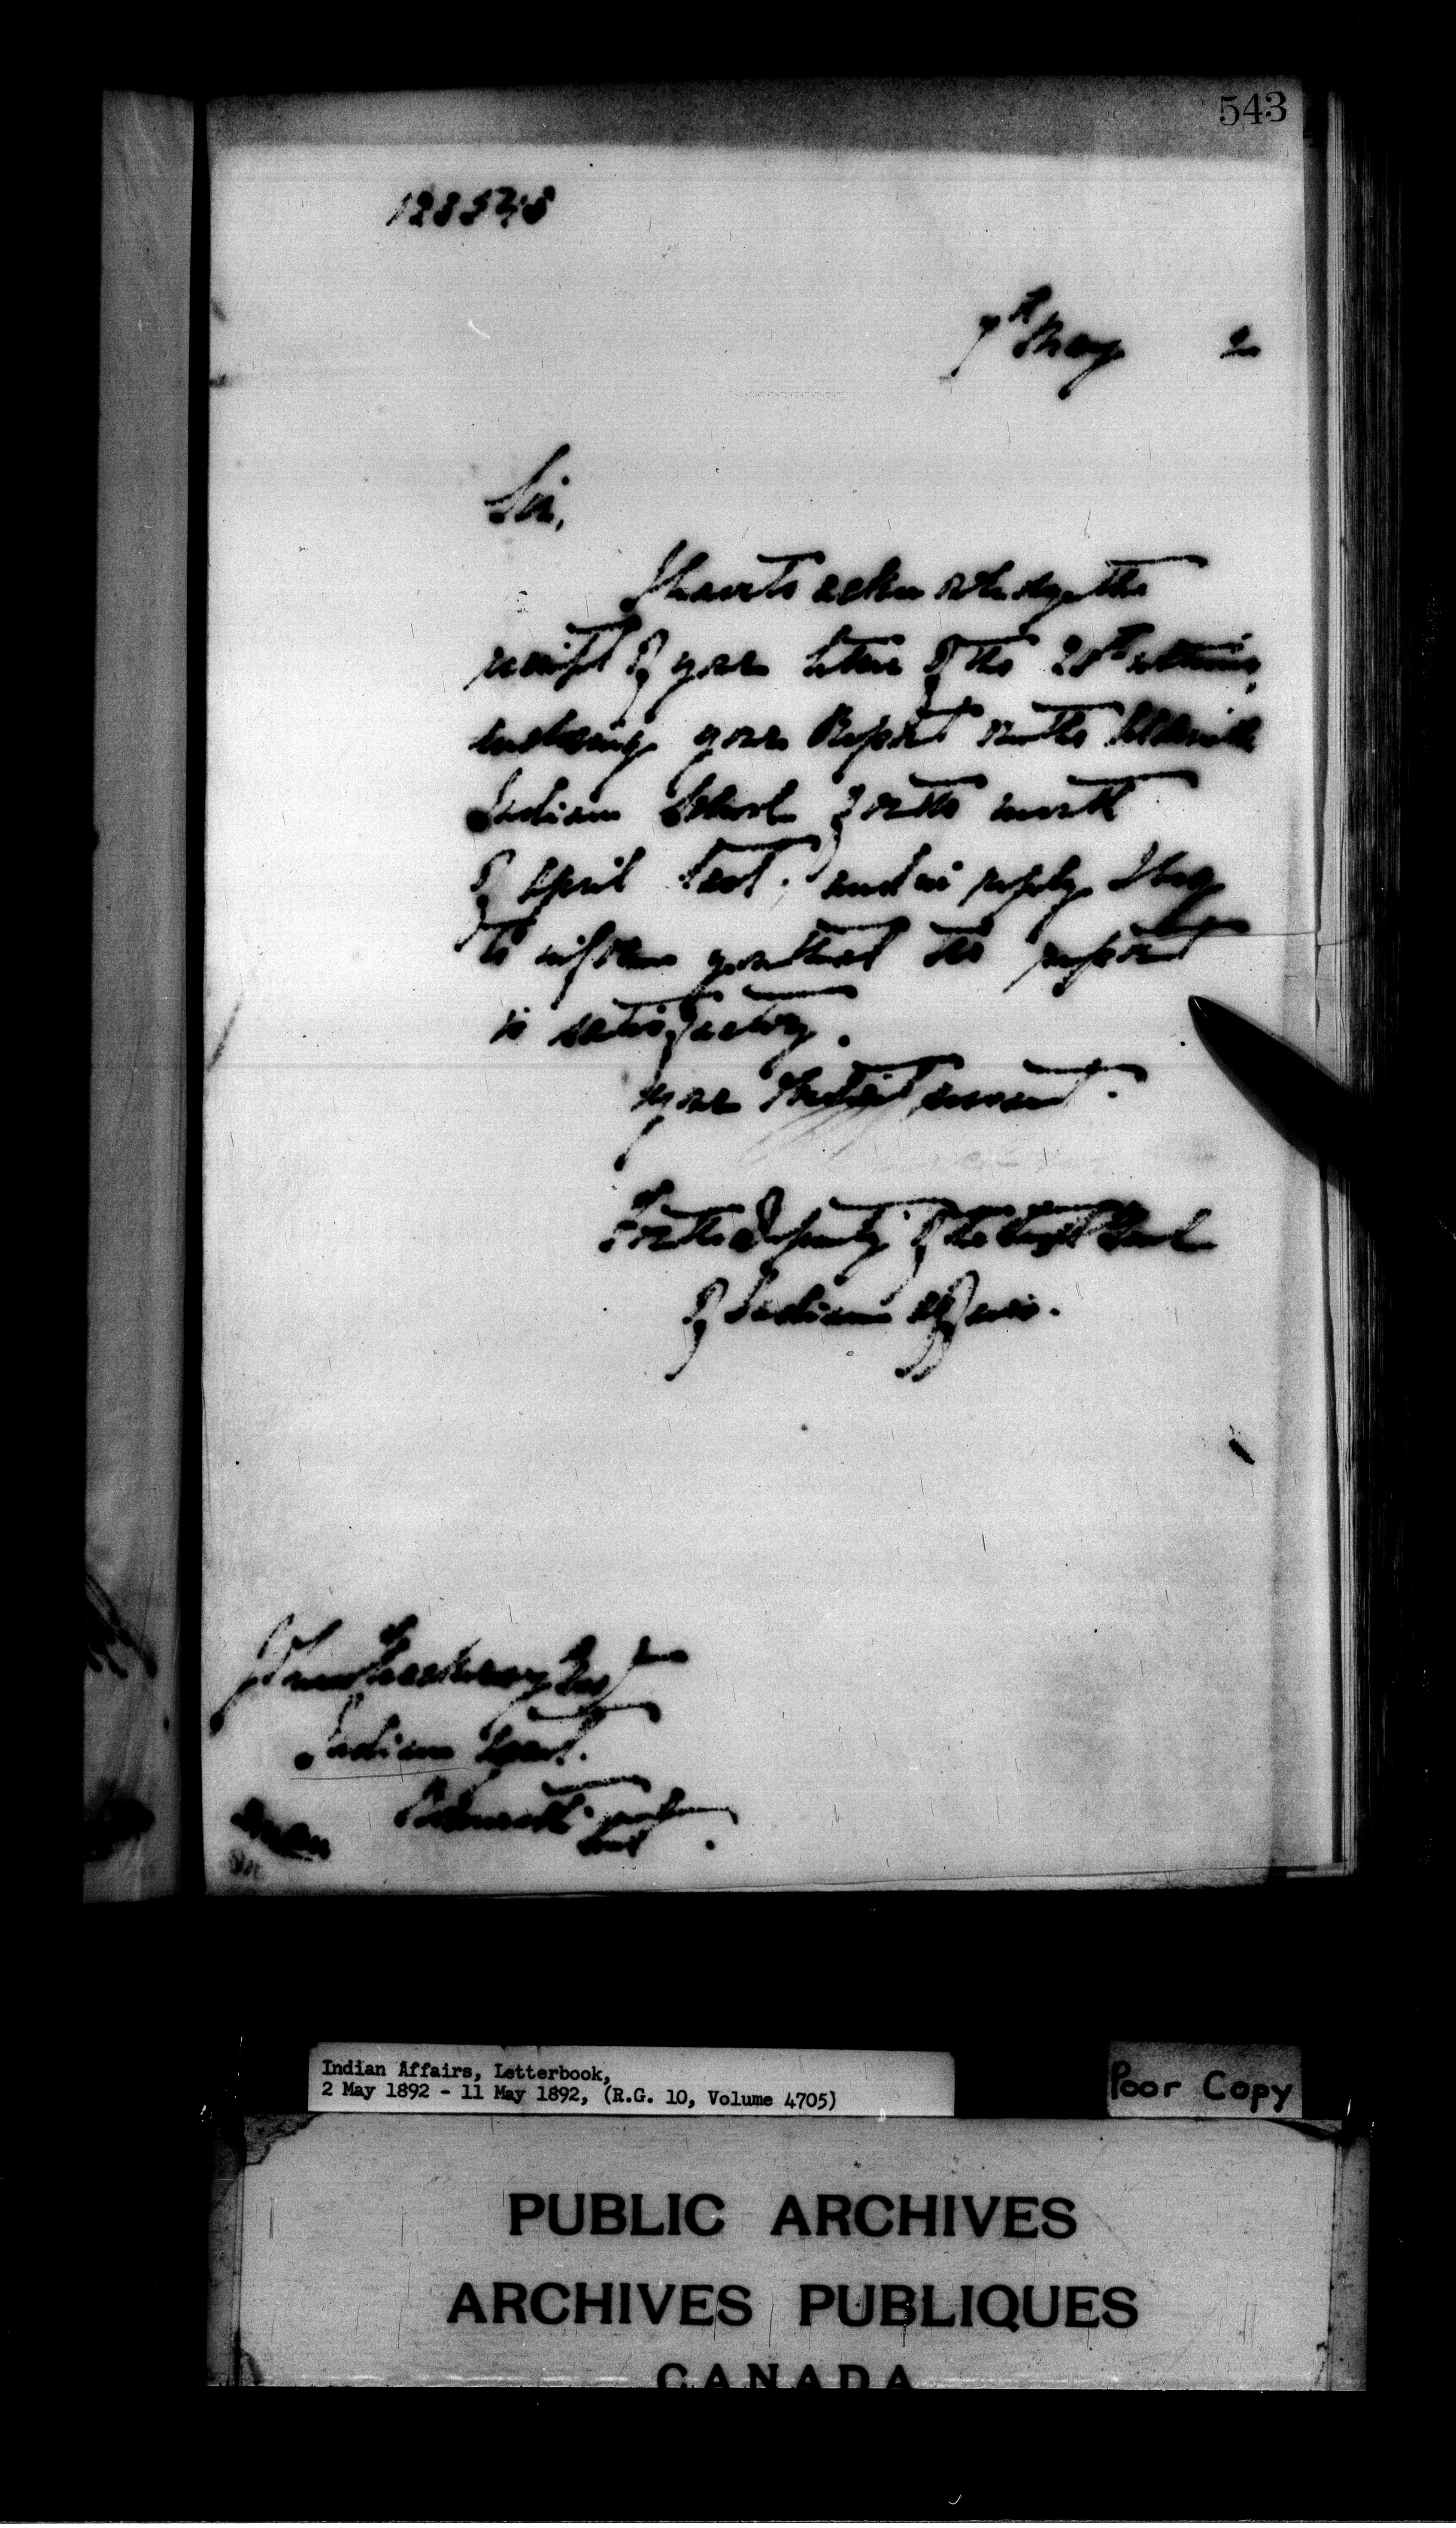 543
7th May 2
Sir,
I have to acknowledge the
receipt of your letter of the 28th ultimo,
enclosing your Report on the
Indian School for the month
of April last, and in reply I beg
to inform you that the report
is satisfactory.
Your obedient servant.
For the Deputy of the Supt Genl
of Indian Affairs.
John Esq
Indian Agent.
Indian Affairs, Letterbook,
2 May 1892 - 11 May 1892, (R.G. 10, Volume 4705)
Poor Copy
PUBLIC ARCHIVES
ARCHIVES PUBLIQUES
CANADA